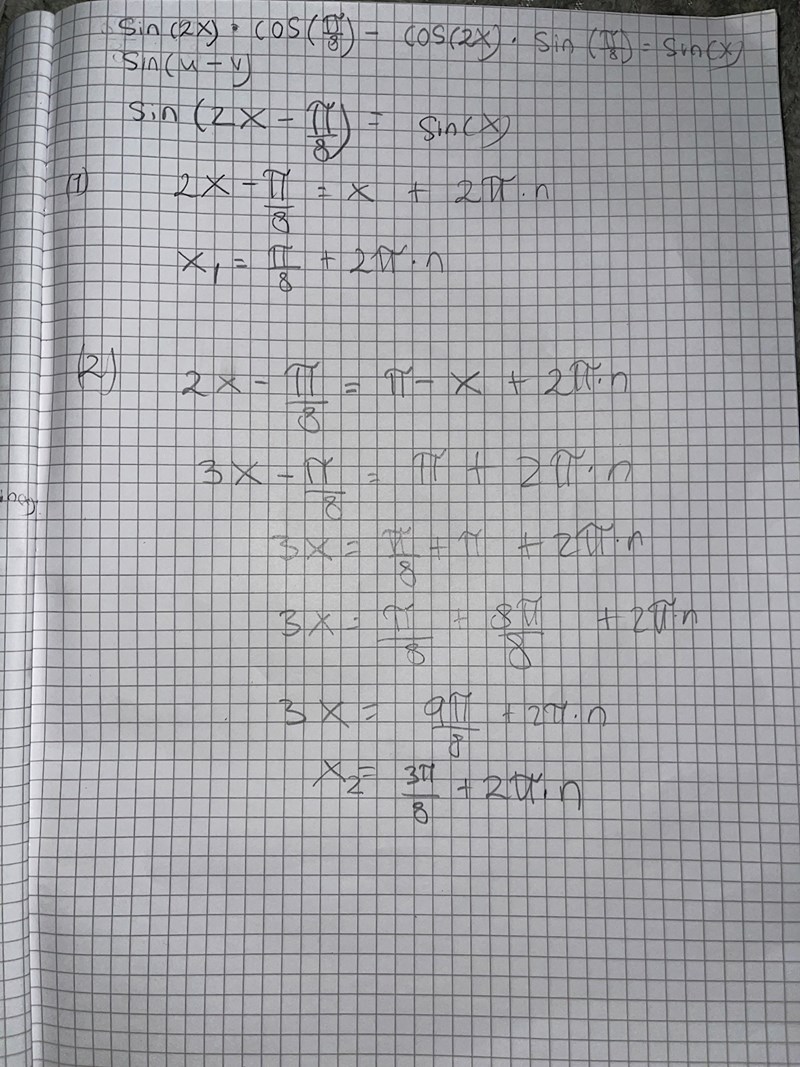 sin(2x) · cos(π/8) - cos(2x) · sin(π/8) = sin(x)
sin(u - v)
sin(2x - π/8) = sin(x)
(1) 2x - π/8 = x + 2π·n
x₁ = π/8 + 2π·n
(2) 2x - π/8 = π - x + 2π·n
3x - π/8 = π + 2π·n
3x = π/8 + π + 2π·n
3x = π/8 + 8π/8 + 2π·n
3x = 9π/8 + 2π·n
x₂ = 3π/8 + 2π·n